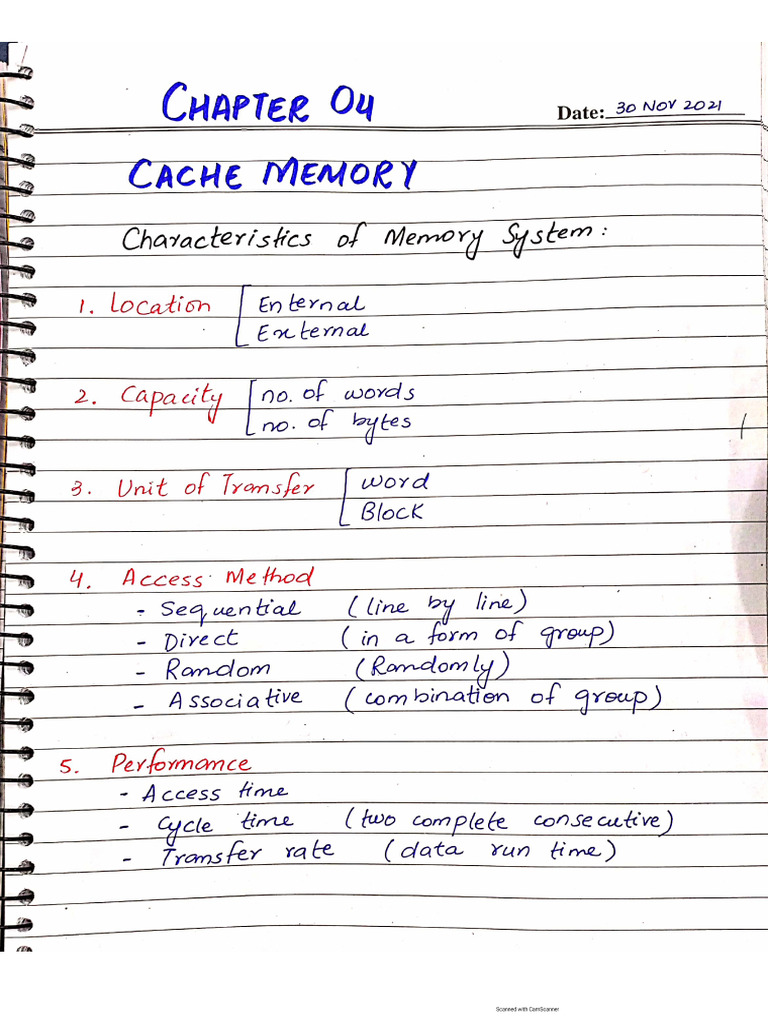 CHAPTER 04
Date: 30 NOV 2021
CACHE MEMORY
Characteristics of Memory System:
1. Location [ Enternal
External
2. Capacity [ no. of words
no. of bytes
3. Unit of Transfer [ word
Block
4. Access Method
- Sequential (line by line)
- Direct (in a form of group)
- Random (Randomly)
- Associative (combination of group)
5. Performance
- Access time
- Cycle time (two complete consecutive)
- Transfer rate (data run time)
Scanned with CamScanner